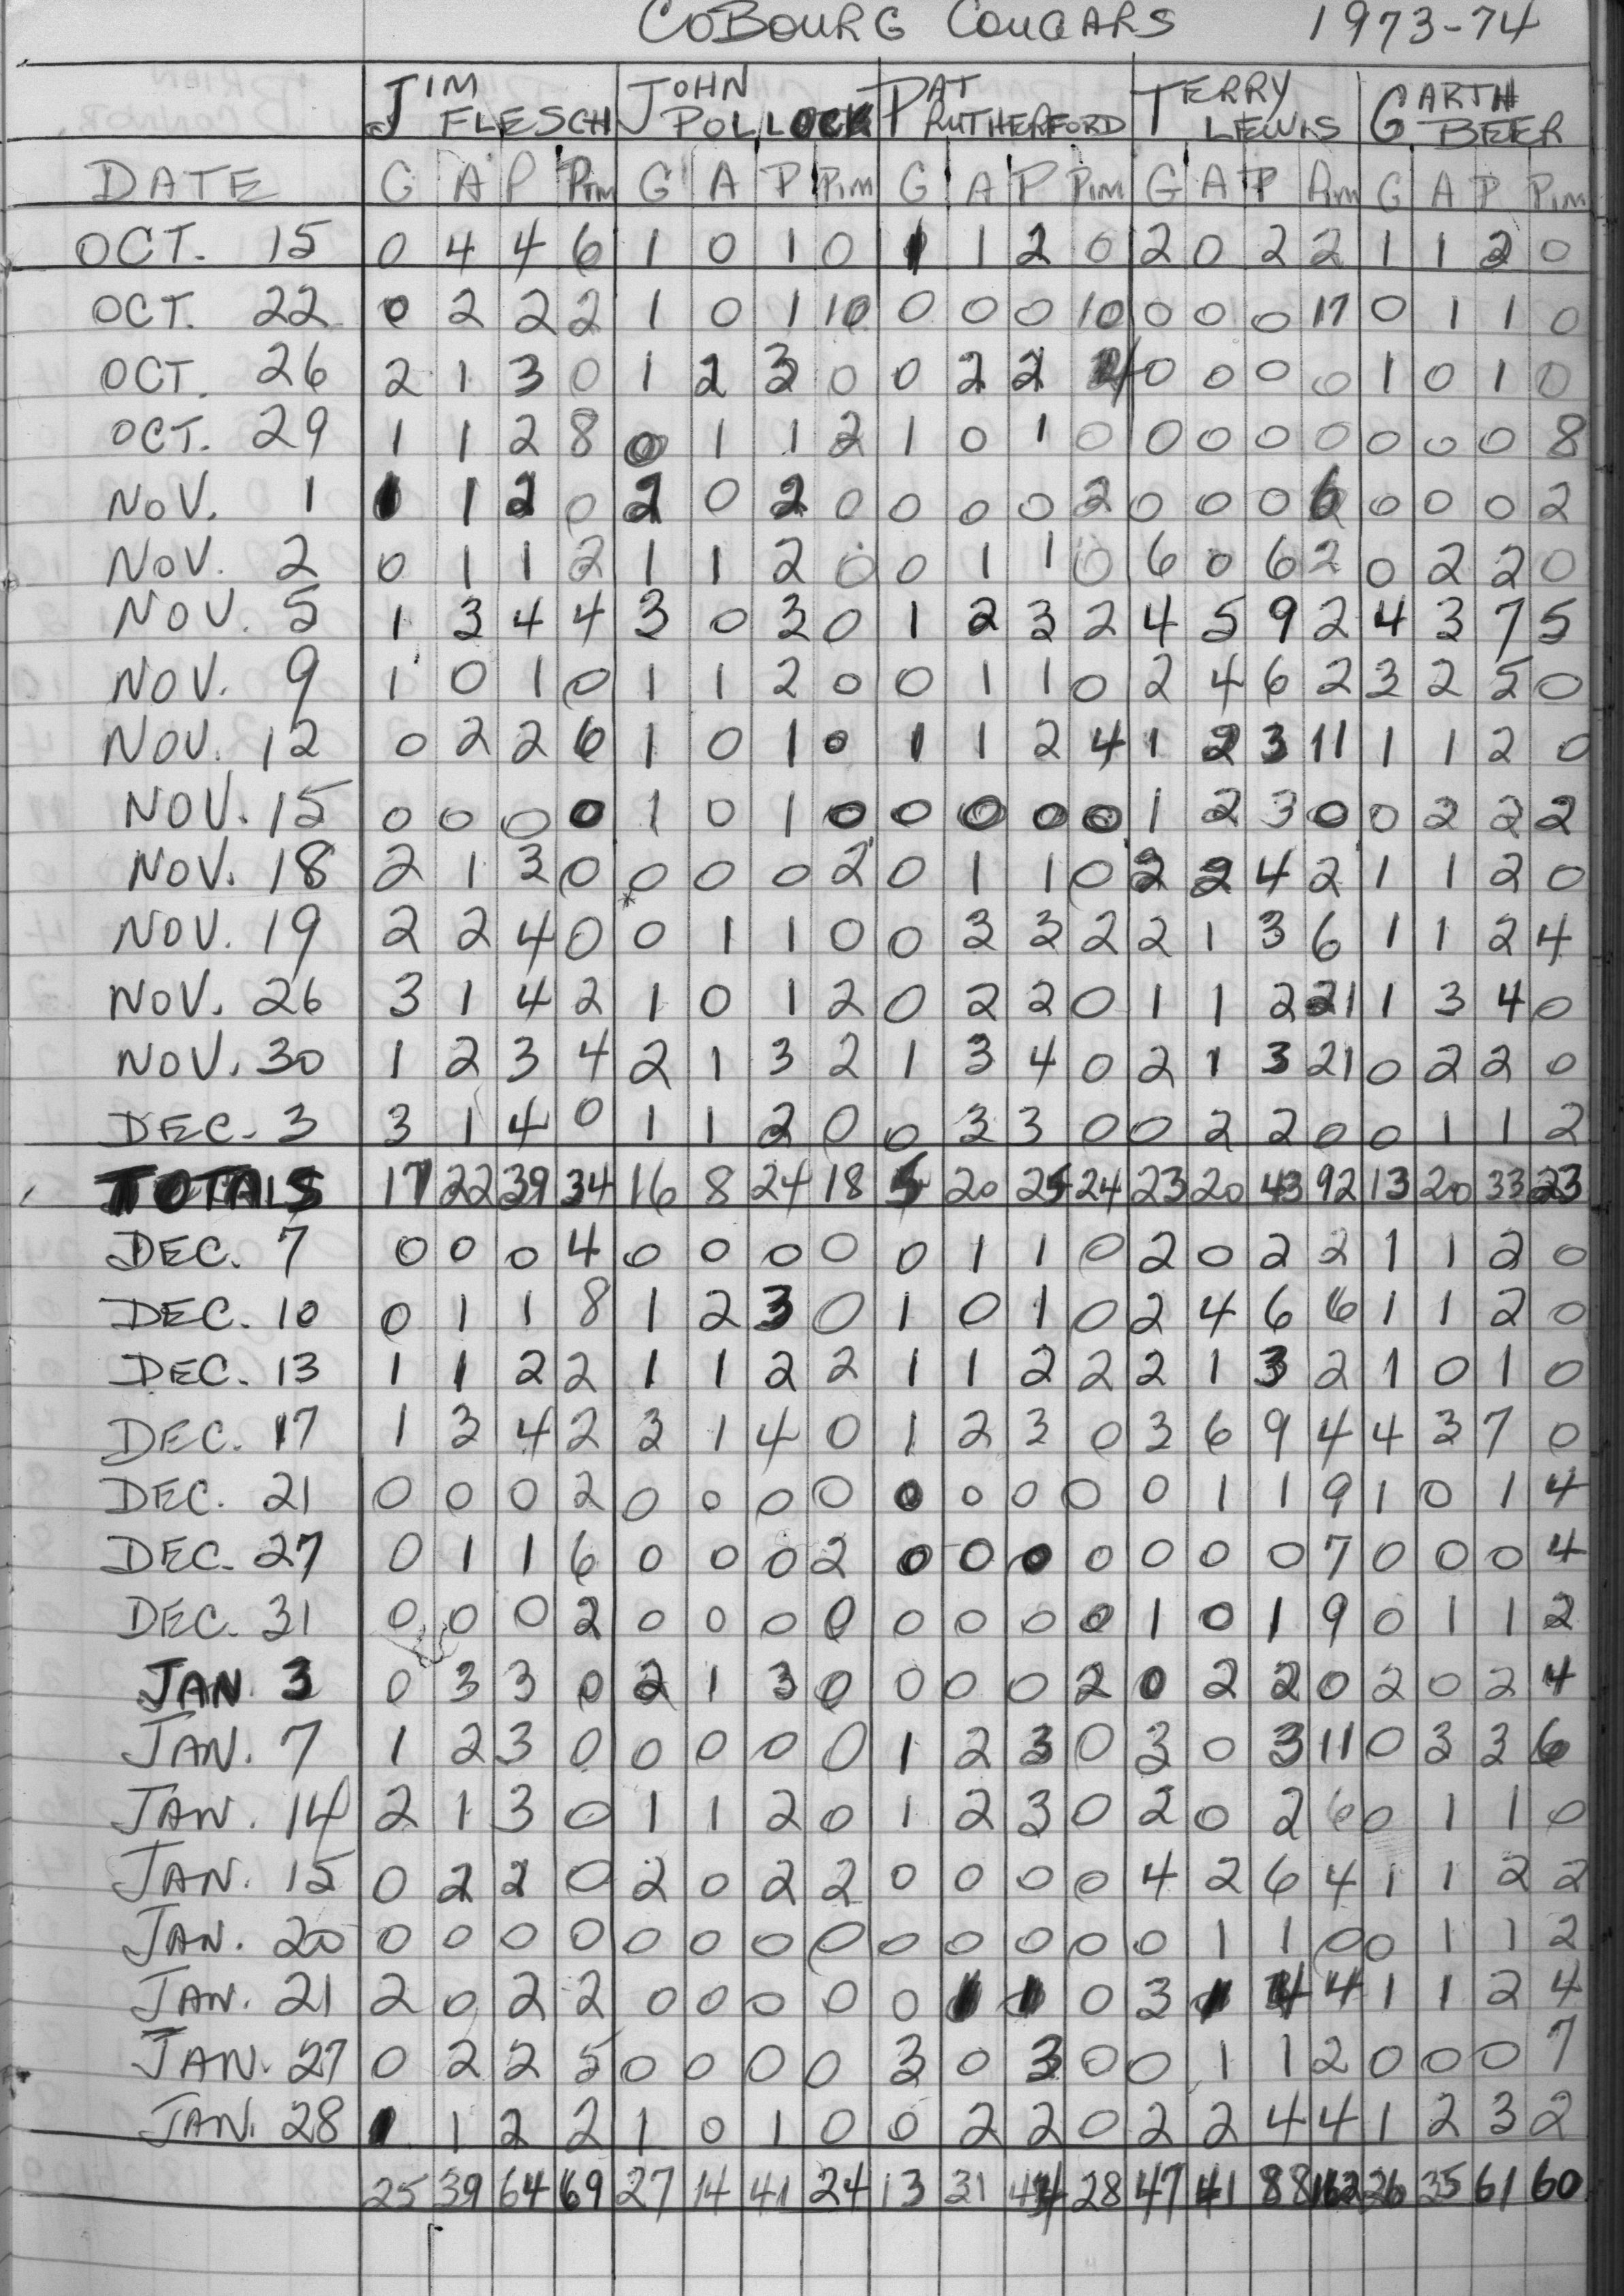 COBOURG COUGARS 1973-74
JIM FLESCH JOHN POLLOCK PAT RUTHERFORD TERRY LEWIS GARTH BEER
DATE G A P Pim G A P Pim G A P Pim G A P Pim G A P Pim
OCT. 15 0 4 4 6 1 0 1 0 1 1 2 0 2 0 2 2 1 1 2 0
OCT. 22 0 2 2 2 1 0 1 10 0 0 0 10 0 0 0 17 0 1 1 0
OCT. 26 2 1 3 0 1 2 3 0 0 2 2 4 0 0 0 0 1 0 1 0
OCT. 29 1 1 2 8 0 1 1 2 1 0 1 0 0 0 0 0 0 0 0 8
NOV. 1 1 1 2 0 2 0 2 0 0 0 0 2 0 0 0 6 0 0 0 2
NOV. 2 0 1 1 2 1 1 2 0 0 1 1 0 6 0 6 2 0 2 2 0
NOV. 5 1 3 4 4 3 0 3 0 1 2 3 2 4 5 9 2 4 3 7 5
NOV. 9 1 0 1 0 1 1 2 0 0 1 1 0 2 4 6 2 3 2 5 0
NOV. 12 0 2 2 6 1 0 1 0 1 1 2 4 1 2 3 11 1 1 2 0
NOV. 15 0 0 0 0 1 0 1 0 0 0 0 0 1 2 3 0 0 2 2 2
NOV. 18 2 1 3 0 0 0 0 2 0 1 1 0 2 2 4 2 1 1 2 0
NOV. 19 2 2 4 0 * 0 1 1 0 0 3 3 2 2 1 3 6 1 1 2 4
NOV. 26 3 1 4 2 1 0 1 2 0 2 2 0 1 1 2 21 1 3 4 0
NOV. 30 1 2 3 4 2 1 3 2 1 3 4 0 2 1 3 21 0 2 2 0
DEC. 3 3 1 4 0 1 1 2 0 0 3 3 0 0 2 2 0 0 1 1 2
TOTALS 17 22 39 34 16 8 24 18 5 20 25 24 23 20 43 92 13 20 33 23
DEC. 7 0 0 0 4 0 0 0 0 0 1 1 0 2 0 2 2 1 1 2 0
DEC. 10 0 1 1 8 1 2 3 0 1 0 1 0 2 4 6 6 1 1 2 0
DEC. 13 1 1 2 2 1 1 2 2 1 1 2 2 2 1 3 2 1 0 1 0
DEC. 17 1 3 4 2 3 1 4 0 1 2 3 0 3 6 9 4 4 3 7 0
DEC. 21 0 0 0 2 0 0 0 0 0 0 0 0 0 1 1 9 1 0 1 4
DEC. 27 0 1 1 6 0 0 0 2 0 0 0 0 0 0 0 7 0 0 0 4
DEC. 31 0 0 0 2 0 0 0 0 0 0 0 0 1 0 1 9 0 1 1 2
JAN. 3 0 3 3 0 2 1 3 0 0 0 0 2 0 2 2 0 2 0 2 4
JAN. 7 1 2 3 0 0 0 0 0 1 2 3 0 3 0 3 11 0 3 3 6
JAN. 14 2 1 3 0 1 1 2 0 1 2 3 0 2 0 2 6 0 1 1 0
JAN. 15 0 2 2 0 2 0 2 2 0 0 0 0 4 2 6 4 1 1 2 2
JAN. 20 0 0 0 0 0 0 0 0 0 0 0 0 0 1 1 0 0 1 1 2
JAN. 21 2 0 2 2 0 0 0 0 0 1 1 0 3 1 4 4 1 1 2 4
JAN. 27 0 2 2 5 0 0 0 0 3 0 3 0 0 1 1 2 0 0 0 7
JAN. 28 1 1 2 2 1 0 1 0 0 2 2 0 2 2 4 4 1 2 3 2
25 39 64 69 27 14 41 24 13 31 44 28 47 41 88 162 26 35 61 60